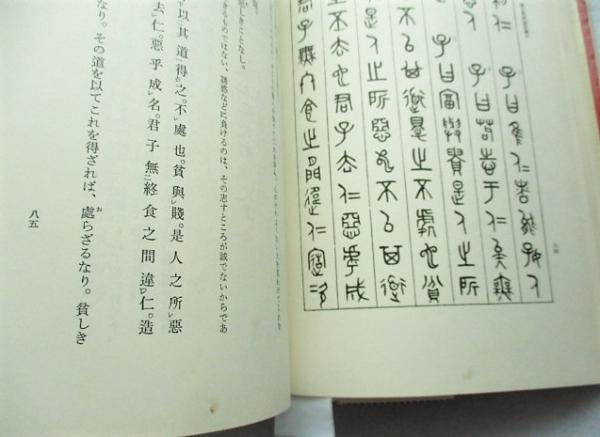 子曰惟仁者能好人
子曰苟志于仁矣無
也 子曰富與貴是人之所
不以其道得之不處也貧
人之所惡也不以其道
不去也君子去仁惡乎成
君子無終食之間違仁造次
きるものではない、誘惑などに負けるのは、その志すところが誠でないからであ
きことなし。
以其道得之。不處也。貧與賤。是人之所惡
去仁。惡乎成名。君子無終食之間違仁。造
なり。その道を以てこれを得ざれば、處らざるなり。貧しき
八五